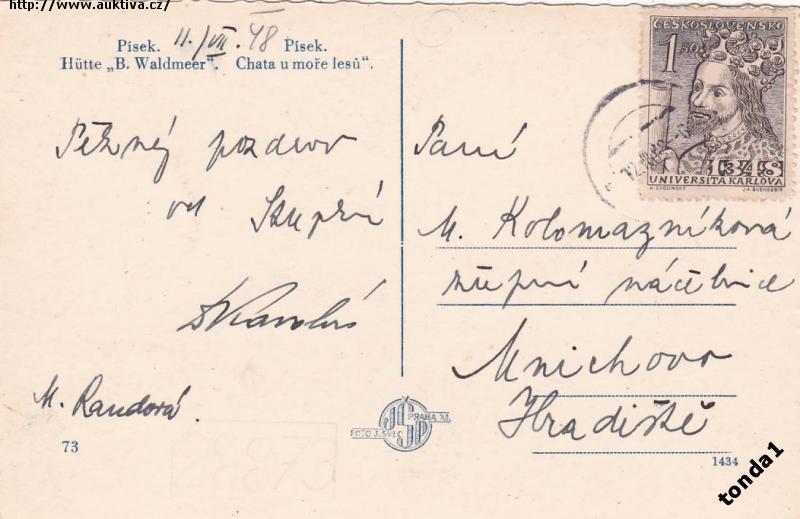 http://www.auktiva.cz/
11./VII. 48
Písek. Písek.
Hütte „B. Waldmeer". Chata u moře lesů".
Pěkný pozdrav
od
M. Randová.
73
FOTO J. ŠVEC
PRAHA XI.
JŠP
ČESKOSLOVENSKO
1
1348
UNIVERSITA KARLOVA
Paní
M. Kolomazníková
župní náčelnice
Mnichovo
Hradiště
1434
tonda1